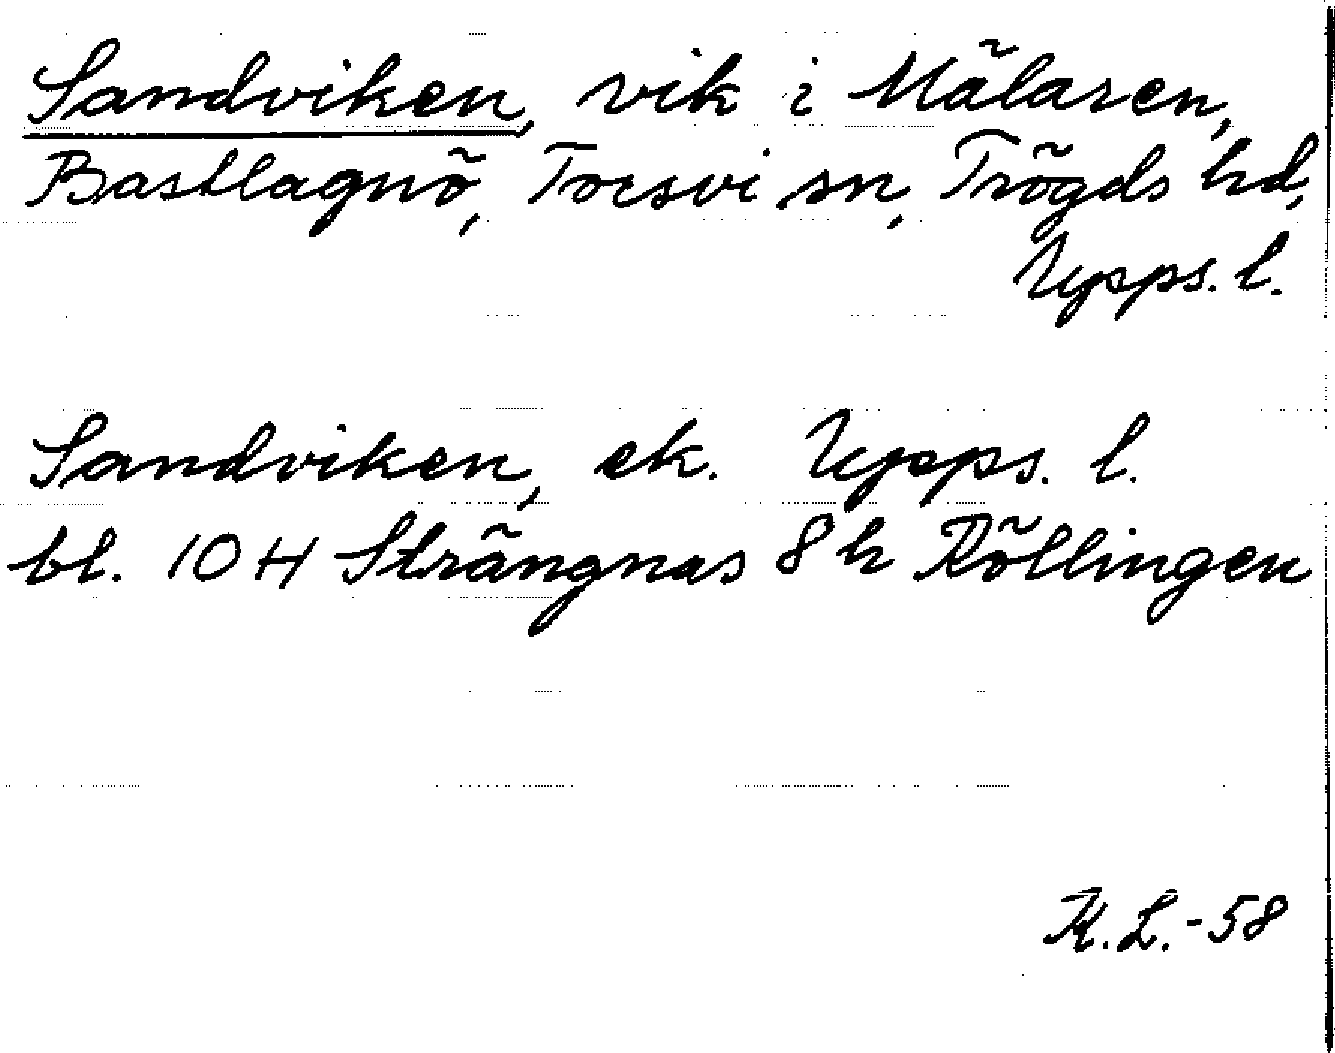 Sandviken, vik i Mälaren,
Bastlagnö, Torsvi sn, Trögds hd,
Upps. l.
Sandviken, ek. Upps. l.
bl. 10 H Strängnas 8 h Köllingen
K.L.-58